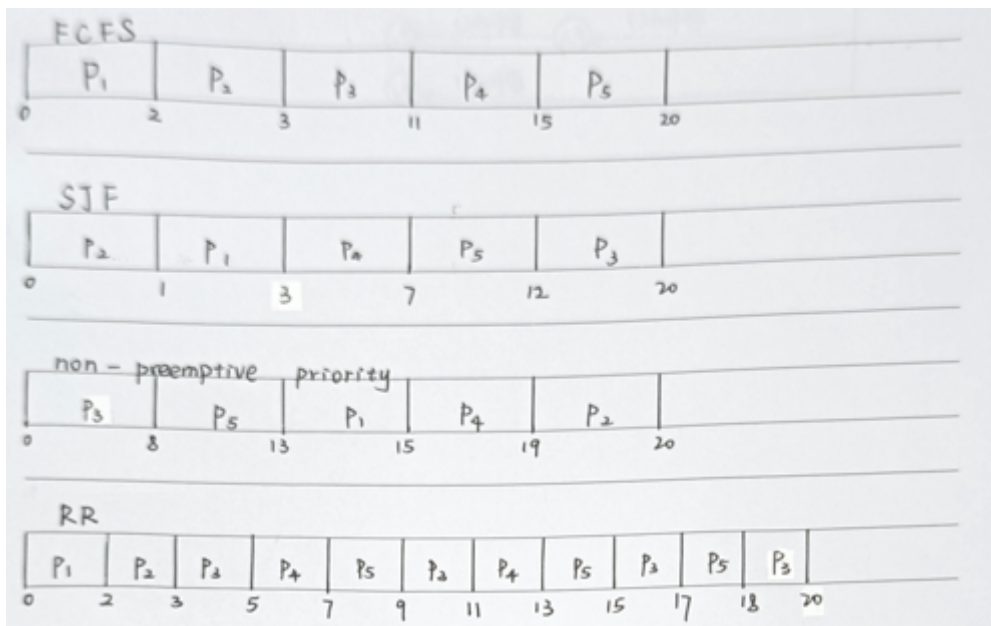 FCFS
P₁ P₂ P₃ P₄ P₅
0 2 3 11 15 20
SJF
P₂ P₁ P₄ P₅ P₃
0 1 3 7 12 20
non-preemptive priority
P₃ P₅ P₁ P₄ P₂
0 8 13 15 19 20
RR
P₁ P₂ P₃ P₄ P₅ P₃ P₄ P₅ P₃ P₅ P₃
0 2 3 5 7 9 11 13 15 17 18 20